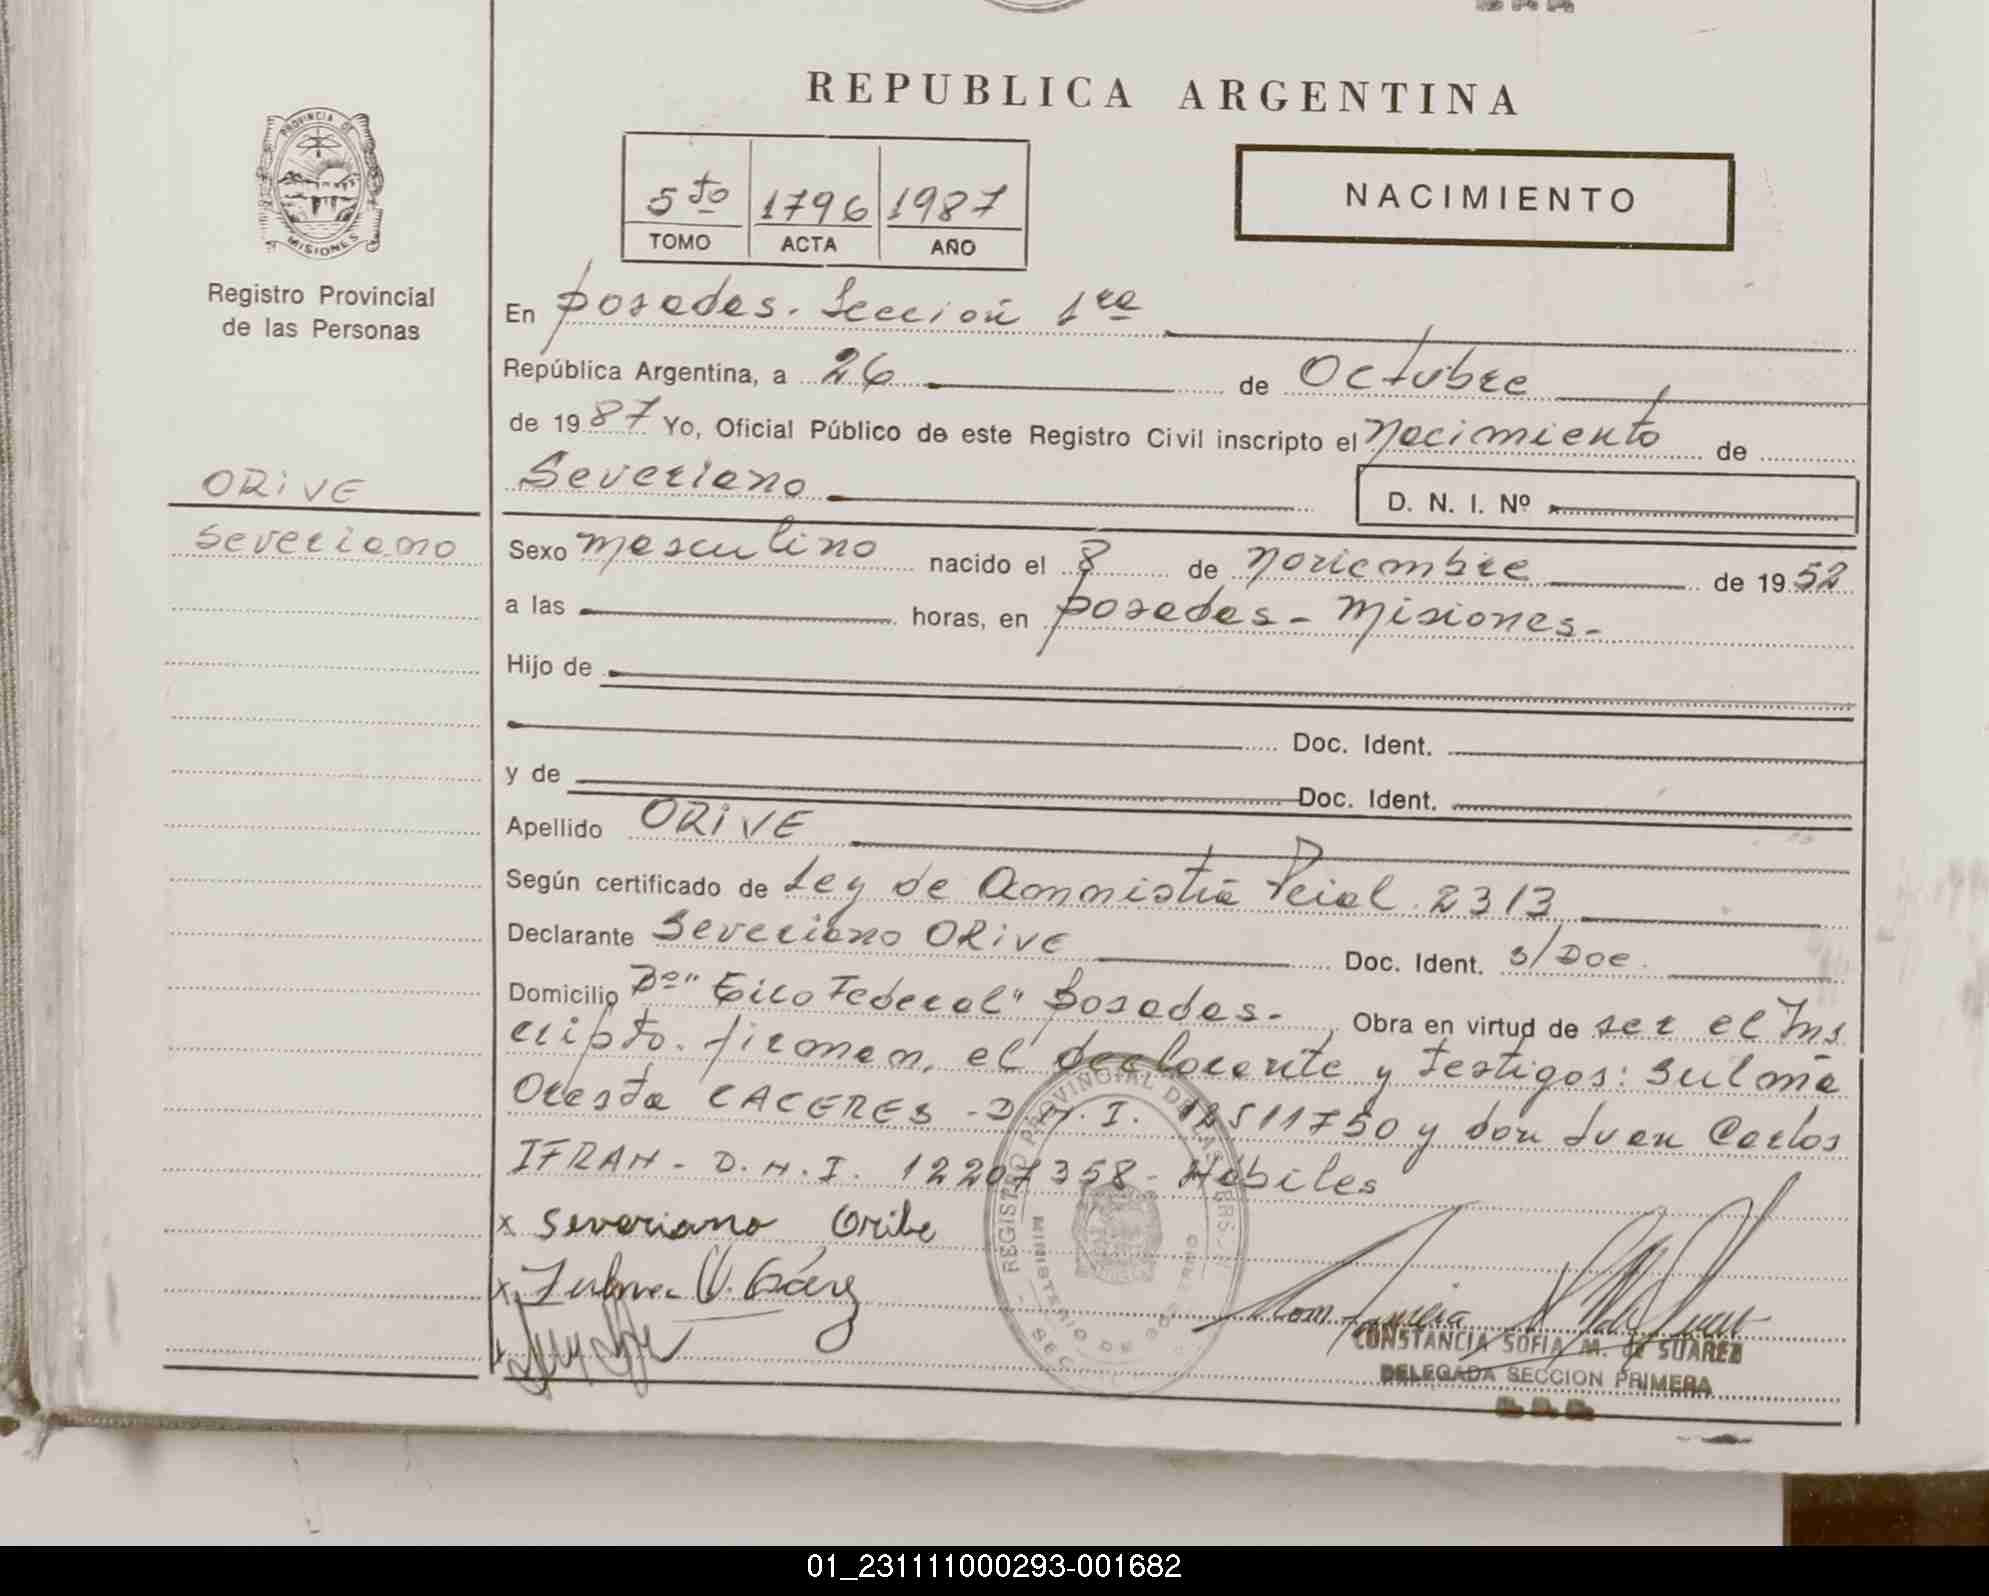 REPUBLICA ARGENTINA
PROVINCIA DE MISIONES
5to 1796 1987
TOMO ACTA AÑO
NACIMIENTO
Registro Provincial
de las Personas
En Posadas. Sección 1ra
República Argentina, a 26 de Octubre
de 1987 Yo, Oficial Público de este Registro Civil inscripto el Nacimiento de
ORIVE
Severiano D. N. I. Nº
Severiano
Sexo masculino nacido el 8 de noviembre de 1952
a las horas, en Posadas - Misiones.-
Hijo de
Doc. Ident.
y de Doc. Ident.
Apellido ORIVE
Según certificado de Ley de Amnistia Pcial. 2313
Declarante Severiano ORIVE Doc. Ident. s/Doc.
Domicilio Bº" Federal" Posadas.- Obra en virtud de ser el Ins
cripto. firman, el declarante y testigos: Sulma
Oresta CACERES - D.N.I. 12511750 y don Juan Carlos
IFRAN - D.N.I. 12207358 - Hábiles
x Severiano Oribe
x
x
REGISTRO PROVINCIAL DE LAS PERSON
MINISTERIO DE GOBIERNO
CONSTANCIA SOFIA M. de SUAREZ
DELEGADA SECCION PRIMERA
01_231111000293-001682